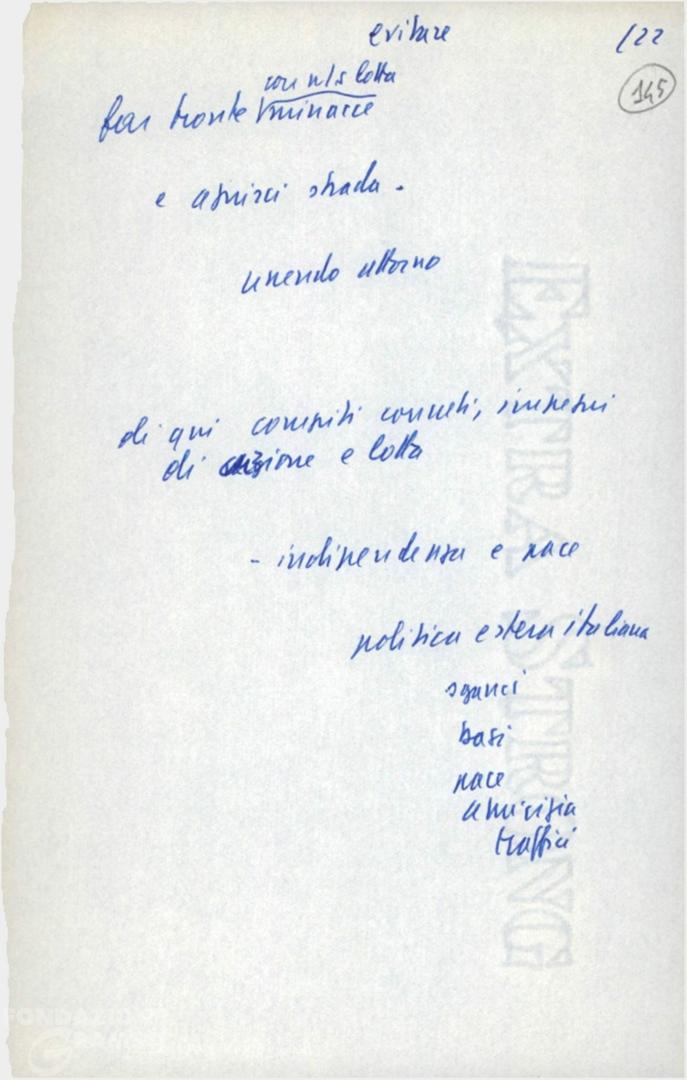 evitare /22
145
con n/s lotta
far fronte minacce
e aprirci strada.
unendo attorno
di qui compiti concreti, impegni
di azione e lotta
- indipendenza e pace
politica estera italiana
sganci
basi
pace
amicizia
traffici
EXTRA STRONG
FONDAZIONE